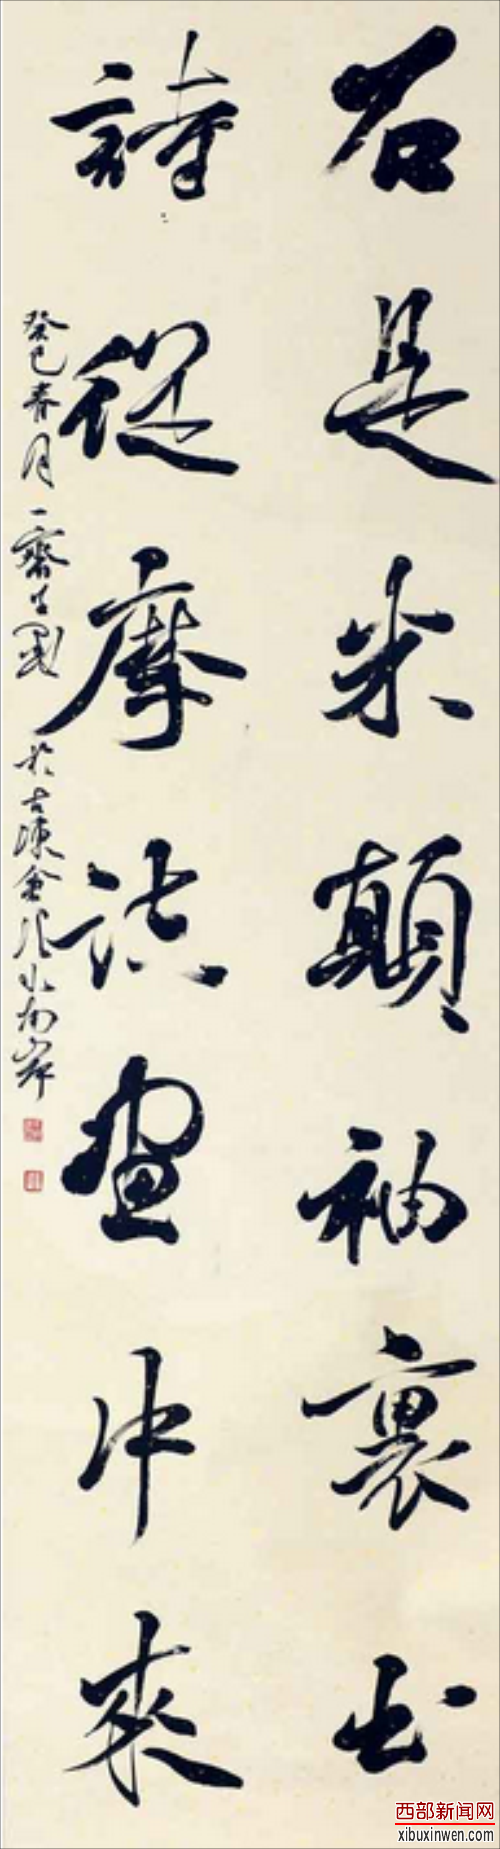 石是米顛袖裏出
詩從摩詰畫中來
癸巳春月一齋於古陳南岸
西部新闻网
xibuxinwen.com